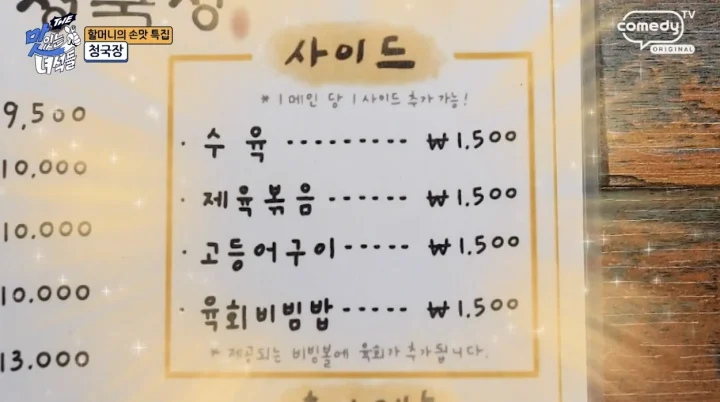 THE
맛있는
녀석들
할머니의 손맛 특집
청국장
comedy TV
ORIGINAL
청국장
9,500
10,000
10.000
10.000
13.000
사이드
* 1 메인 당 1 사이드 추가 가능!
· 수육 ········· ₩1.500
· 제육볶음 ······ ₩1.500
· 고등어구이 ····· ₩1.500
· 육회비빔밥 ····· ₩1.500
* 제공되는 비빔볼에 육회가 추가 됩니다.